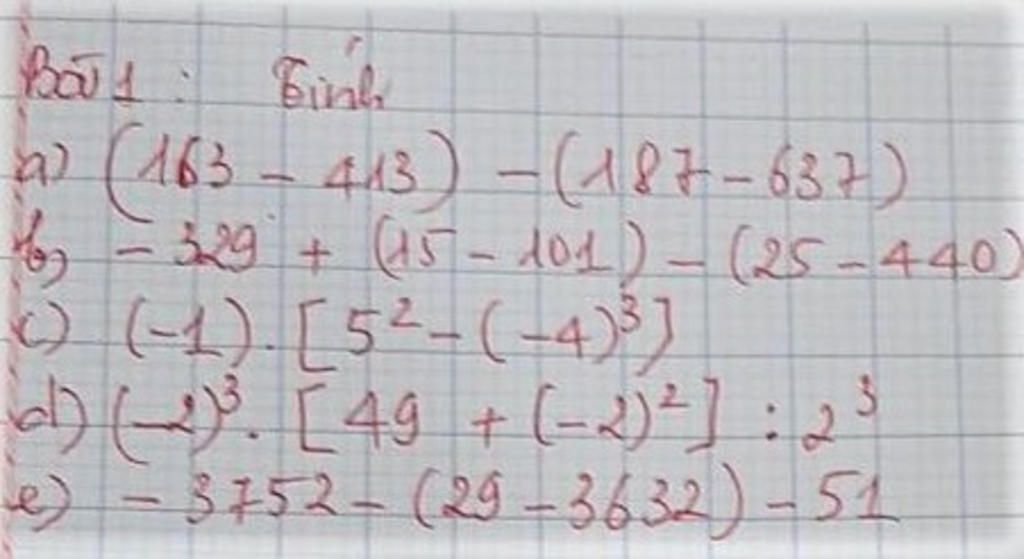 Bài 1 : Tính
a) (163 - 413) - (187 - 637)
b) - 329 + (15 - 101) - (25 - 440)
c) (-1) . [5² - (-4)³]
d) (-2)³ . [49 + (-2)²] : 2³
e) - 3752 - (29 - 3632) - 51